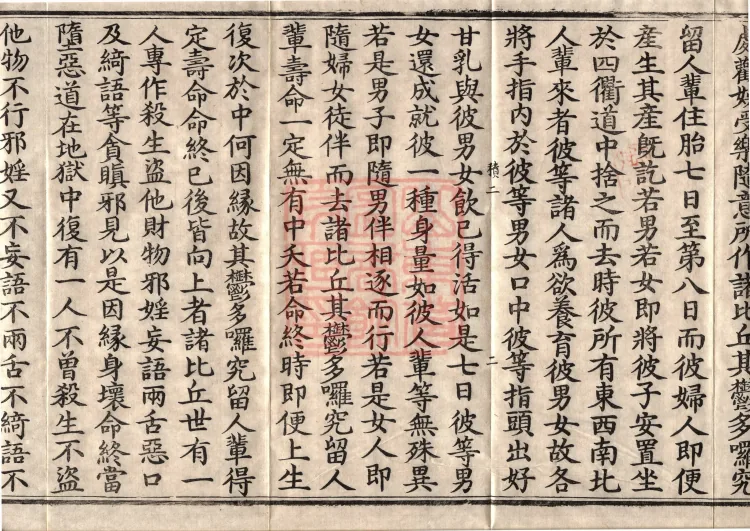 處歡娛受樂隨意所作諸比丘其鬱多囉究
留人輩住胎七日至第八日而彼婦人即便
產生其產既訖若男若女即將彼子安置坐
於四衢道中捨之而去時彼所有東西南北
人輩來者彼等諸人為欲養育彼男女故各
將手指內於彼等男女口中彼等指頭出好
積二
二
甘乳與彼男女飲已得活如是七日彼等男
女還成就彼一種身量如彼人輩等無殊異
若是男子即隨男伴相逐而行若是女人即
隨婦女徒伴而去諸比丘其鬱多囉究留人
輩壽命一定無有中夭若命終時即便上生
復次於中何因緣故其鬱多囉究留人輩得
定壽命命終已後皆向上者諸比丘世有一
人專作殺生盜他財物邪婬妄語兩舌惡口
及綺語等貪瞋邪見以是因緣身壞命終當
墮惡道在地獄中復有一人不曾殺生不盜
他物不行邪婬又不妄語不兩舌不綺語不